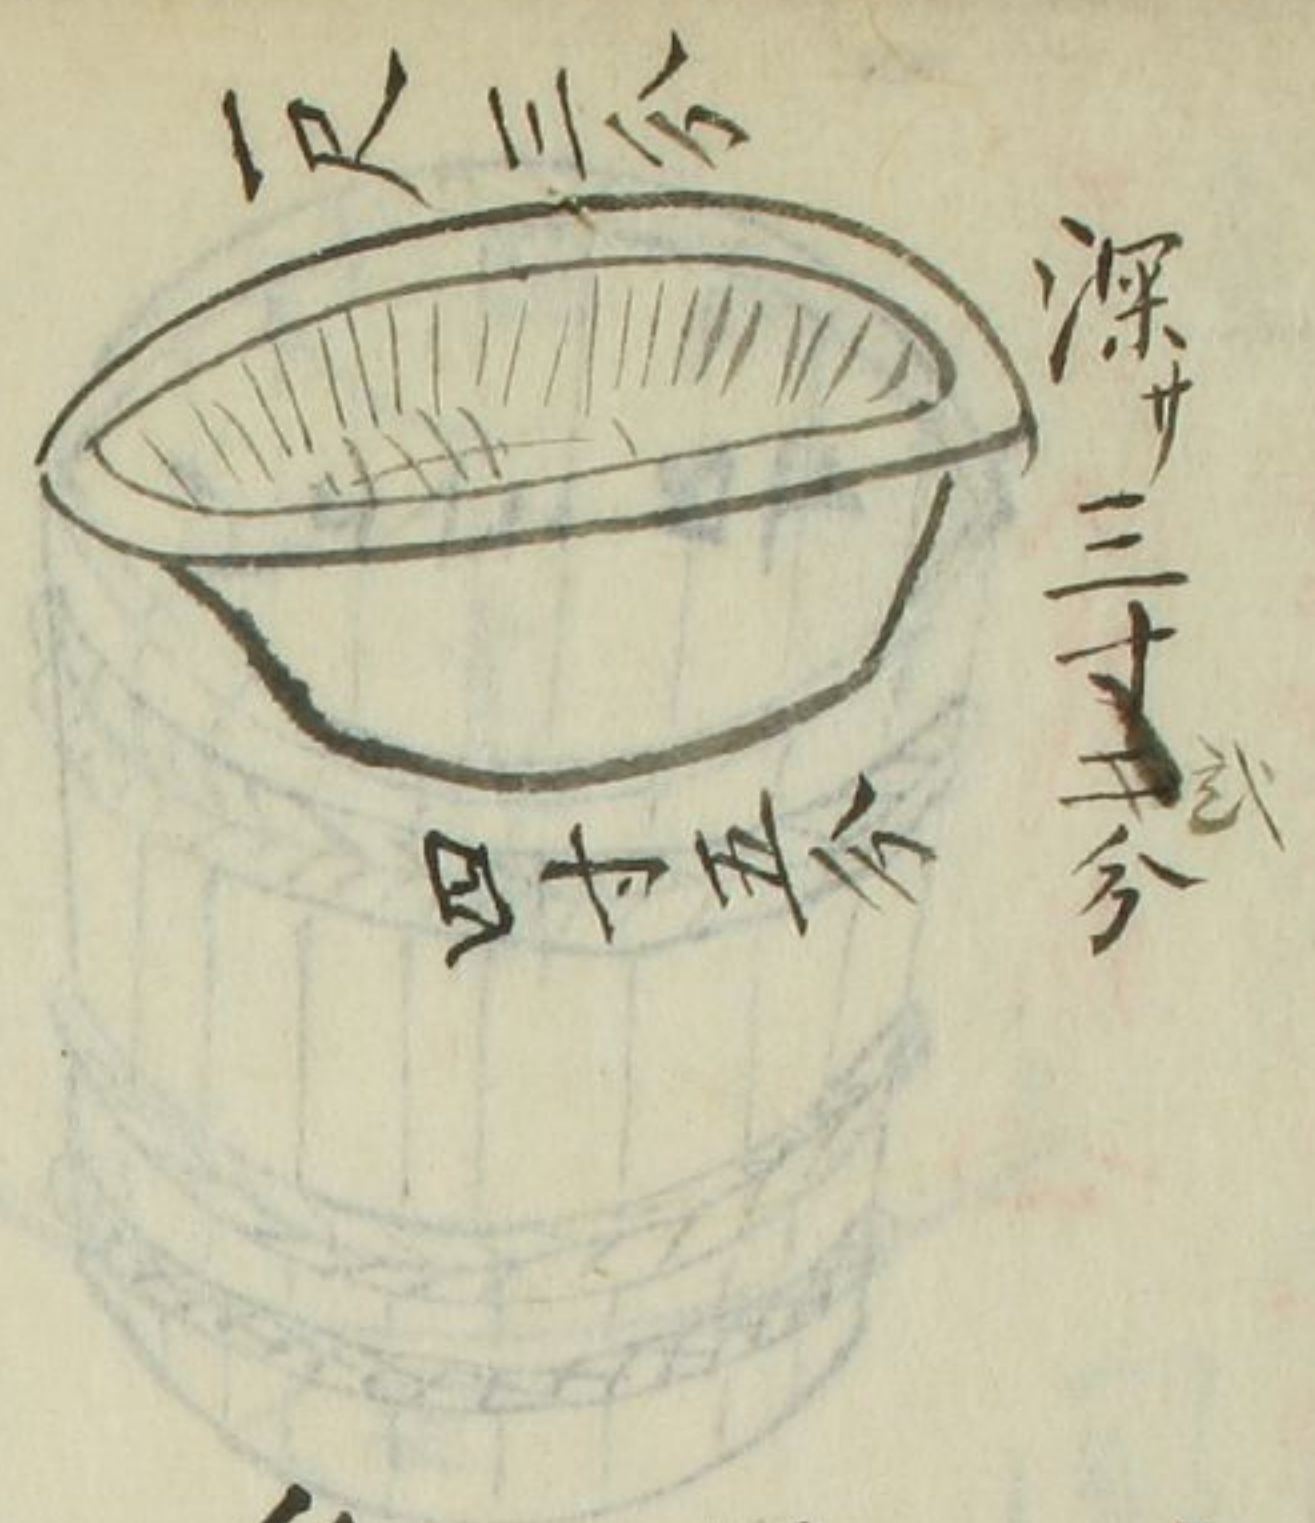 一尺三分
深サ三寸弐分
四寸五分